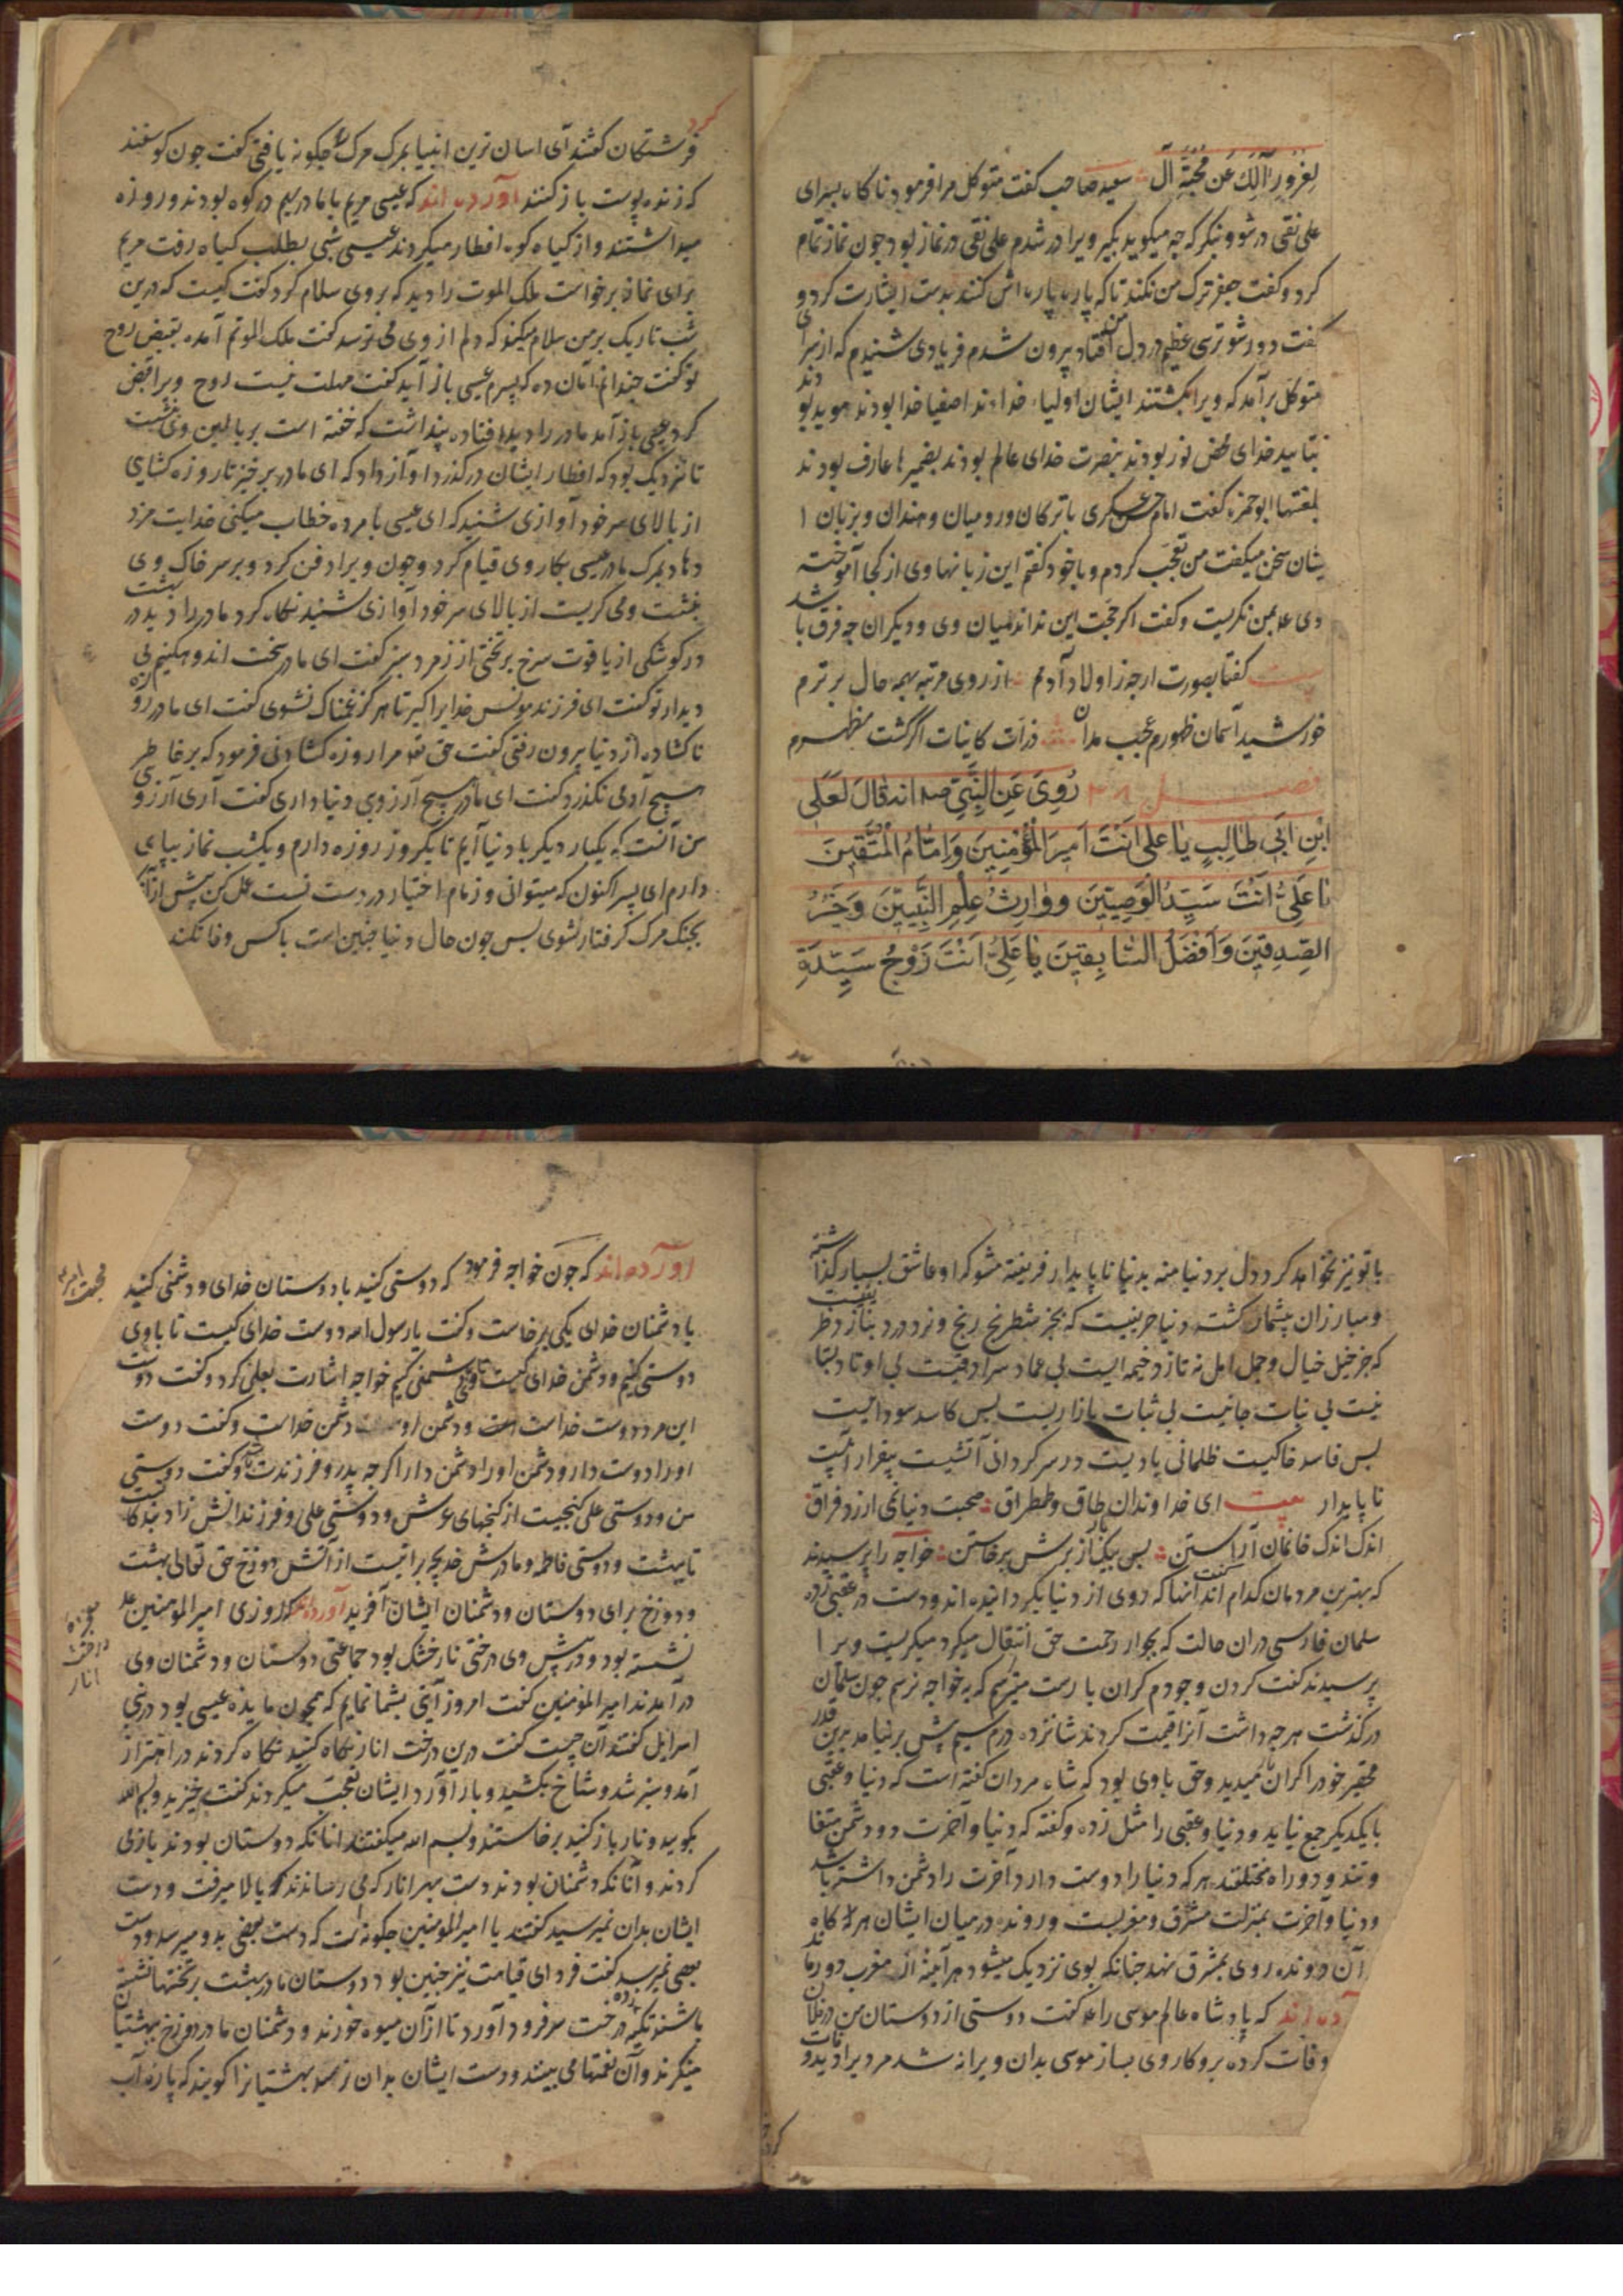 لغرورا لك عن محبة آل سعید صاحب کفت متوکل مرا فرمود ناکاه بسرای
علی نقی در شو و بنکر که چه میکوید بکیر ویرا در شدم علی نقی در نماز بود جون نماز تمام
کرد و کفت جعفر ترک من نکند تا که پاره پاره اش کنند بدست اشارت کرد و
کفت دور شو ترسی عظیم در دل من افتاد بیرون شدم فریادی شنیدم که از سرای
متوکل برآمد که ویرا بکشتند ایشان اولیاء خدا اند اصفیا خدا بودند موید بودند
بتایید خدای محض نور بودند بنصرت خدای عالم بودند بضمیرها عارف بودند
بلغتها ابو حمزه کفت امام حسن عسکری با ترکان و رومیان و هندان و بزبان ا
یشان سخن میکفت من تعجب کردم و با خود کفتم این زبانها وی از کجا آموخته
وی علا بمن نکریست و کفت اکر حجت این نداند میان وی و دیکران چه فرق باشد
بیت کفتا بصورت ارچه ز اولاد آدمم از روی مرتبه بهمه حال برترم
خورشید آسمان ظهورم عجب مدان ذرات کاینات اکر کشت مظهرم
فصل ۳۸ رُوِیَ عَنِ النَّبِیِّ صه انه قَالَ لِعَلَی
ابْنِ ابَی طالِبٍ یا علی اَنْتَ اَمِیرَ الْمُؤمِنِینَ وَ اِمَامُ الْمُتَّقِینَ
یا عَلَیُّ اَنْتَ سَیِّدُ الْوَصِیّینَ وَ وارِثُ عِلْمِ النَّبِیّینَ وَ خَیْرُ
الصِدِقینَ وَ اَفْضَلُ السّابِقینَ یا عَلِیُّ اَنْتَ زَوْجُ سَیِّدَةِ
فرشتکان کفتند ای اسان ترین انبیا بمرک مرک را چکونه یافتی کفت جون کوسفند
که زنده پوست باز کنند آورده اند که عیسی مریم با مادر بهم در کوه بودند و روزه
میداشتند و از کیاه کوه افطار میکردند عیسی شبی بطلب کیاه رفت مریم
برای نماز برخواست ملک الموت را دید که بر وی سلام کرد کفت کیست که درین
شب تاریک بر من سلام میکند که دلم از وی می ترسد کفت ملک الموتم آمده بقبض روح
تو کفت چندانم امان ده که پسرم عیسی باز آید کفت مهلت نیست روح ویرا قبض
کرد عیسی باز آمد مادر را دید افتاده پنداشت که خفته است بر بالین وی بنشست
تا نزدیک بود که افطار ایشان درکذرد اوآز داد که ای مادر برخیز تا روزه کشای
از بالای سر خود آوازی شنید که ای عیسی با مرده خطاب میکنی خدایت مزد
دهاد بمرک مادر عیسی بکار وی قیام کرد و جون ویرا دفن کرد و بر سر خاک وی
بنشست و می کریست از بالای سر خود آوازی شنید نکاه کرد مادر را دید در بهشت
در کوشکی از یاقوت سرخ بر تختی از زمرد سبز کفت ای مادر سخت اندوهکینم بی
دیدار تو کفت ای فرزند مونس خدایرا کیر تا هرکز غمناک نشوی کفت ای مادر روزه
ناکشاده از دنیا بیرون رفتی کفت حق تع مرا روزه کشادنی فرمود که بر خاطر
هیچ آدمی نکذرد کفت ای مادر هیچ آرزوی دنیا داری کفت آری آرزوی
من آنست که یکبار دیکر با دنیا آیم تا یکروز روزه دارم و یکشب نماز بپای
دارم ای پسر اکنون که میتوانی و زمام اختیار در دست تست عمل کن پیش از آنکه
بچنک مرک کرفتار شوی بس جون حال دنیا چنین است با کس وفا نکند
با تو نیز نخواهد کرد دل بر دنیا منه بدنیا ناپایدار فریفته مشو که او عاشق بسیار کذاشته
و مبارزان بیشمار کشته دنیا حریفیست که بجز شطرنج رنج و نرد درد نبازد
که جز خیل خیال و جمل امل نه تازد خیمه ایست بی عماد سرادقیست بی اوتاد
نیست بی نبات جانیست بی ثبات بازاریست بس کاسد سوداییست
بس فاسد خاکیست ظلمانی بادیست در سرکردانی آتشیست بیقرار آبیست
ناپایدار بیت ای خداوندان طاق و طمطراق صحبت دنیا نمی ارزد فراق
اندک اندک خانمان آراستن بس بیکبار از برش برخاستن خواجه را پرسیدند
که بهترین مردمان کدام اند کفت آنها که روی از دنیا بکردانیده اند و دست در عقبی زده
سلمان فارسی در ان حالت که بجوار رحمت حق انتقال میکرد میکریست ویرا
پرسیدند کفت کردن وجودم کران بارست میترسم که به خواجه نرسم جون سلمان
درکذشت هر چه داشت آنرا قیمت کردند شانزده درم سیم بیش برنیامد بدین قدر
محقر خود را کران بار میدید و حق با وی بود که شاه مردان کفته است که دنیا و عقبی
با یکدیکر جمع نیاید و دنیا و عقبی را مثل زده و کفته که دنیا و آخرت دو دشمن متفا
وتند و دو راه مختلفند هر که دنیا را دوست دارد آخرت را دشمن داشته باشد
و دنیا و آخرت بمنزلت مشرق و مغربست و رونده در میان ایشان هر کاه
آن رونده روی بمشرق نهد چنانکه بوی نزدیک میشود هر آینه از مغرب دور ماند
آورده اند که پادشاه عالم موسی را علا کفت دوستی از دوستان من در فلان
وفات کرده برو کار وی بساز موسی بدان ویرانه شد مرد یرا دید وفات
اورده اند که جون خواجه فرمود که دوستی کنید با دوستان خدای و دشمنی کنید
با دشمنان خدای یکی برخاست و کفت یا رسول الله دوست خدای کیست تا با وی
دوستی کنیم و دشمن خدای کیست تا با وی دشمنی کنیم خواجه اشارت بعلی کرد و کفت دوست
این مرد دوست خداست و دشمن او دشمن خداست و کفت دوست
اورا دوست دار و دشمن اورا دشمن دار اکرچه پدر و فرزندت باشد و کفت دوستی
من و دوستی علی کنجیست از کنجهای عرش و دوستی علی و فرزندانش زاد بندکانست
تا بهشت و دوستی فاطمه و مادرش خدیجه براتیست از آتش دوزخ حق تعالی بهشت
و دوزخ برای دوستان و دشمنان ایشان آفرید آورده اند که روزی امیر المومنین علا
نشسته بود و در پیش وی درختی نار خشک بود جماعتی دوستان و دشمنان وی
درآمدند امیر المومنین کفت امروز آیتی بشما نمایم که همچون مایده عیسی بود در بنی
اسرایل کفتند آن چیست کفت درین درخت انار نکاه کنید نکاه کردند در اهتزاز
آمد و سبز شد و شاخ بکشید و بار آورد ایشان تعجب میکردند کفت برخیزید و بسم الله
بکویید و نار باز کنید برخاستند و بسم الله میکفتند انانکه دوستان بودند باز می
کردند و آنانکه دشمنان بودند دست بهر انار که می رساندند بالا میرفت و دست
ایشان بدان نمیرسید کفتند یا امیر المومنین چکونه است که دست بعضی بدو میرسد و دست
بعضی نمیرسد کفت فردای قیامت نیز چنین بود دوستان ما در بهشت بر تختها نشسته
باشند تکیه زده درخت سر فرود آورد تا از آن میوه خورند و دشمنان ما در دوزخ بهشتیان
مینکرند و آن نعمتها می بینند و دست ایشان بدان نرسد بهشتیانرا کویند که پاره آب
معجزه
درخت
انار